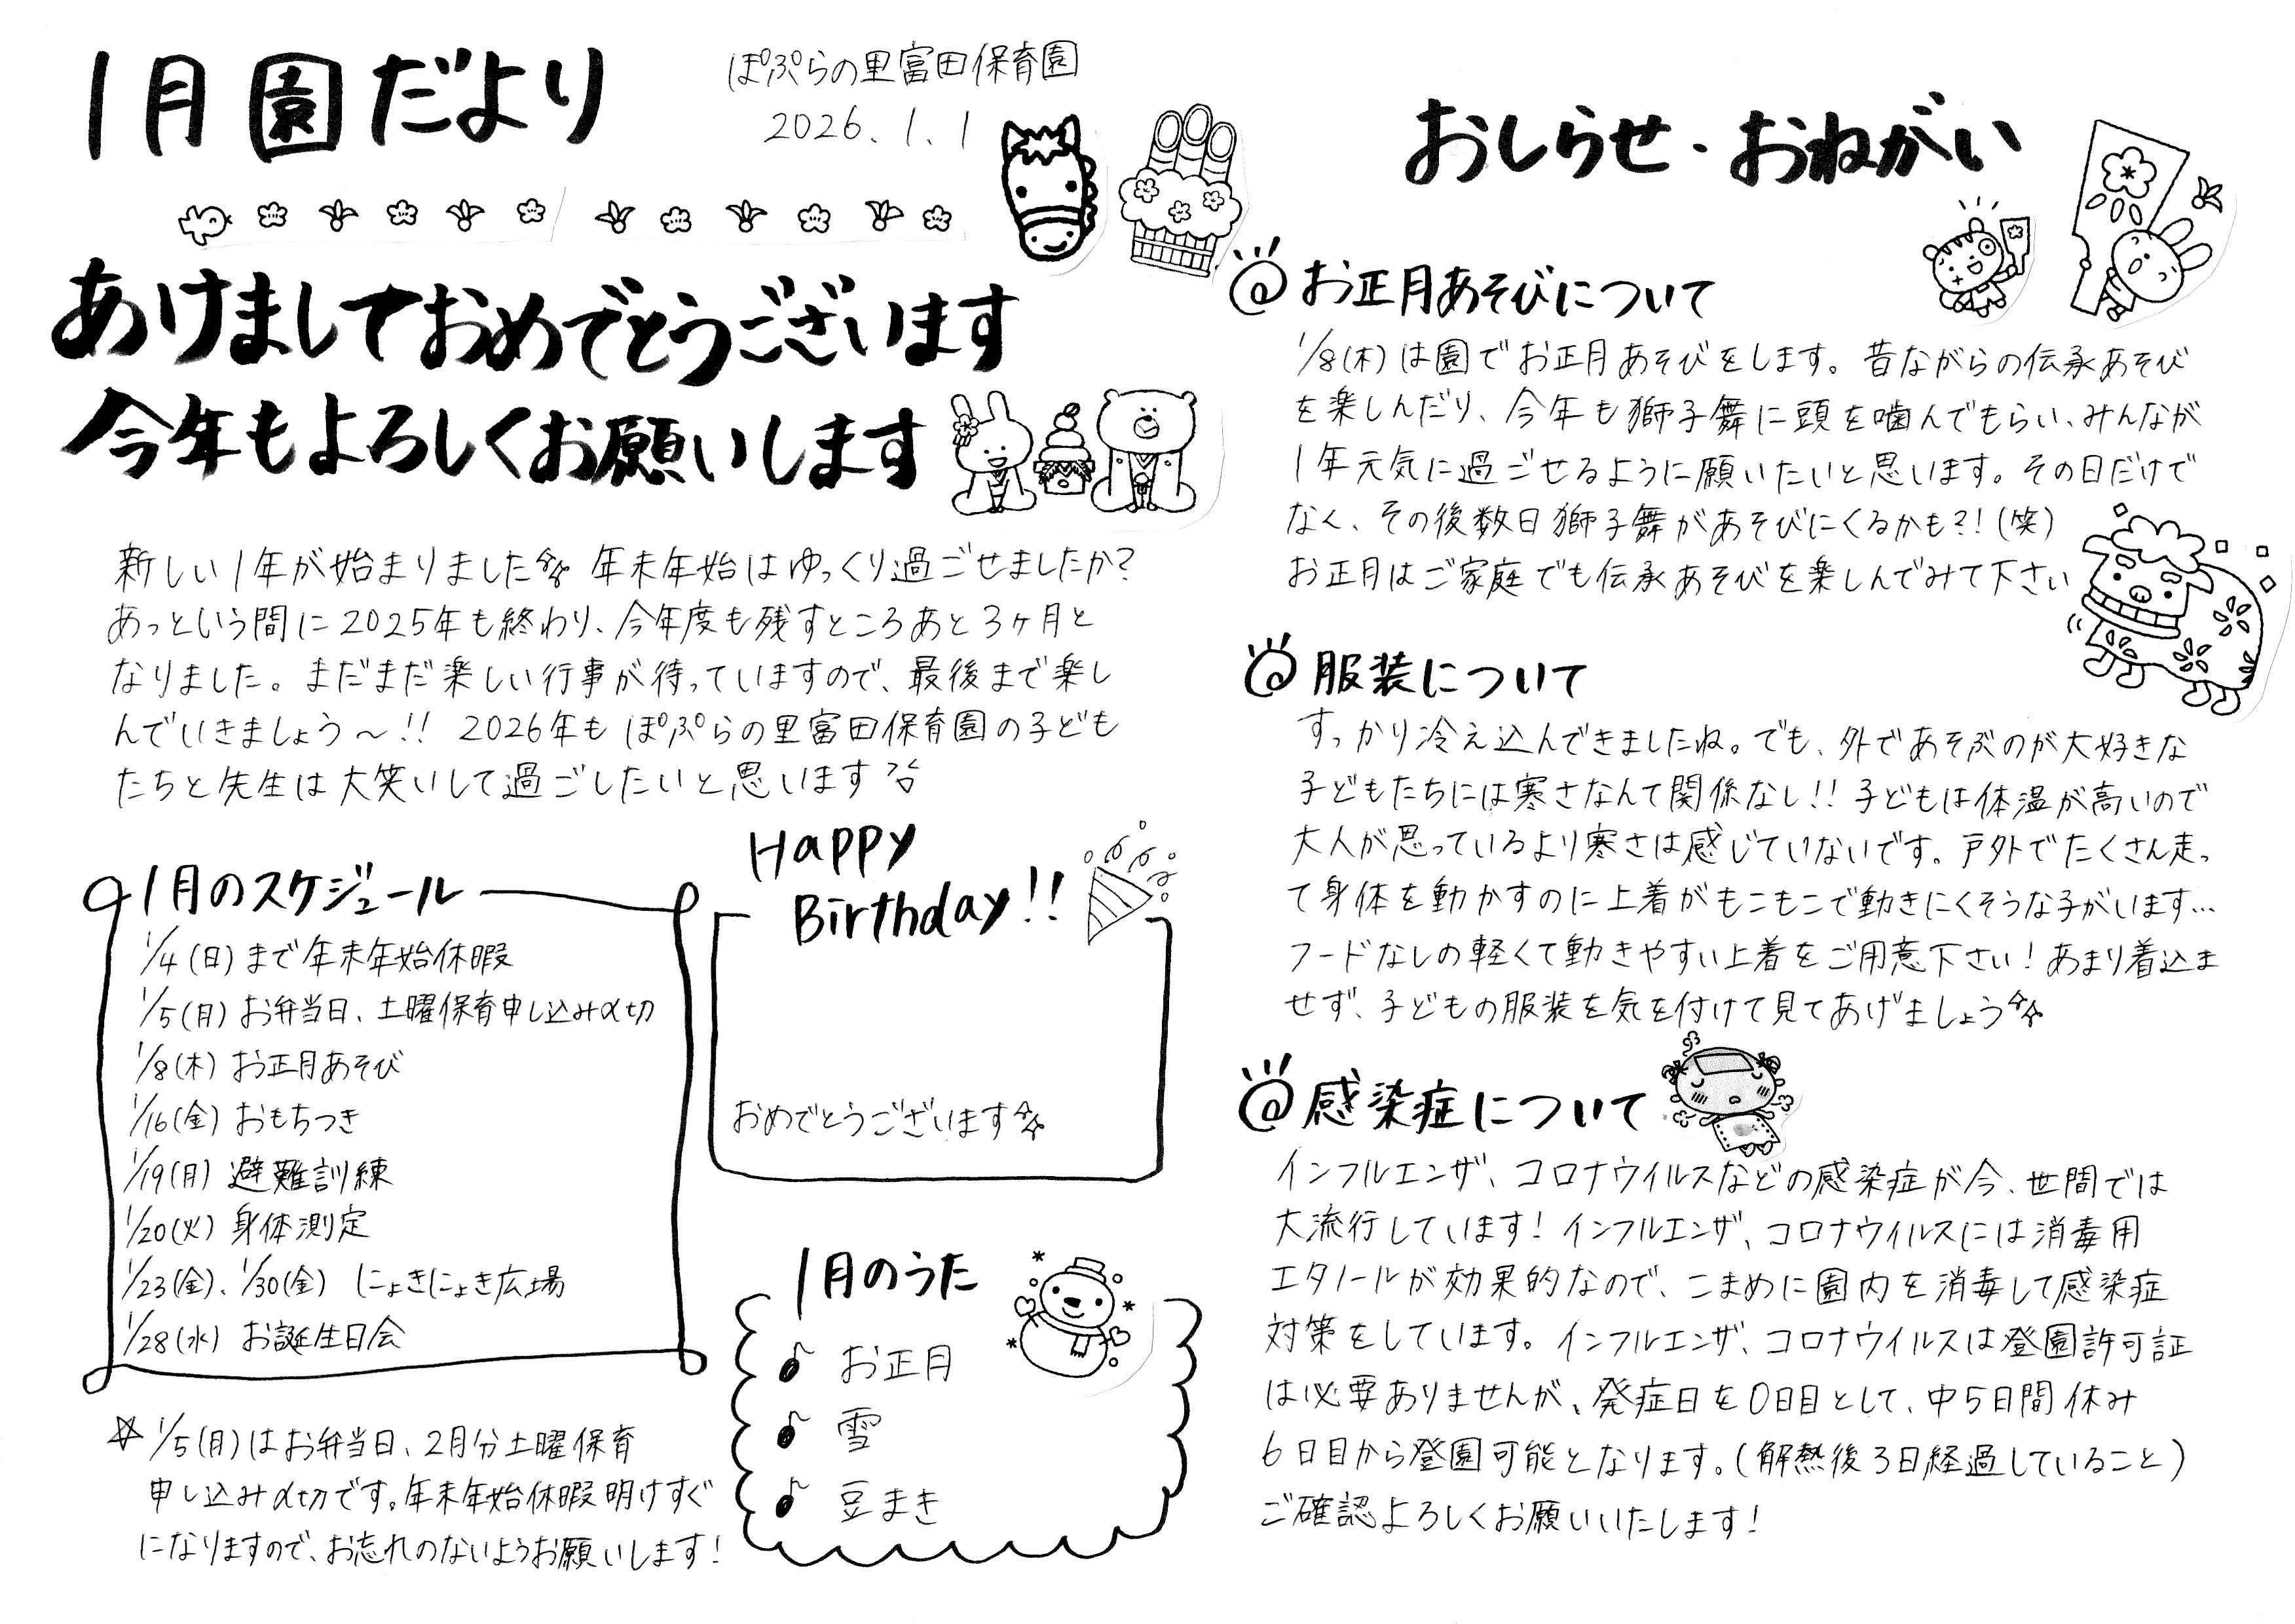 1月園だより
ぽぷらの里富田保育園
2026.1.1
あけましておめでとうございます
今年もよろしくお願いします
新しい1年が始まりました 年末年始はゆっくり過ごせましたか?
あっという間に2025年も終わり、今年度も残すところあと3ヶ月と
なりました。まだまだ楽しい行事が待っていますので、最後まで楽し
んでいきましょう〜!! 2026年もぽぷらの里富田保育園の子ども
たちと先生は大笑いして過ごしたいと思います
1月のスケジュール
1/4(日)まで年末年始休暇
1/5(月)お弁当日、土曜保育申し込み〆切
1/8(木)お正月あそび
1/16(金)おもちつき
1/19(月)避難訓練
1/20(火)身体測定
1/23(金)、1/30(金) にょきにょき広場
1/28(水)お誕生日会
☆1/5(月)はお弁当日、2月分土曜保育
申し込み〆切です。年末年始休暇明けすぐ
になりますので、お忘れのないようお願いします!
Happy
Birthday!!
おめでとうございます
1月のうた
♪ お正月
♪ 雪
♪ 豆まき
おしらせ・おねがい
@お正月あそびについて
1/8(木)は園でお正月あそびをします。昔ながらの伝承あそび
を楽しんだり、今年も獅子舞に頭を噛んでもらい、みんなが
1年元気に過ごせるように願いたいと思います。その日だけで
なく、その後数日獅子舞があそびにくるかも?!(笑)
お正月はご家庭でも伝承あそびを楽しんでみて下さい
@服装について
すっかり冷え込んできましたね。でも、外であそぶのが大好きな
子どもたちには寒さなんて関係なし!!子どもは体温が高いので
大人が思っているより寒さは感じていないです。戸外でたくさん走っ
て身体を動かすのに上着がもこもこで動きにくそうな子がいます…
フードなしの軽くて動きやすい上着をご用意下さい!あまり着込ま
せず、子どもの服装を気を付けて見てあげましょう
@感染症について
インフルエンザ、コロナウイルスなどの感染症が今、世間では
大流行しています!インフルエンザ、コロナウイルスには消毒用
エタノールが効果的なので、こまめに園内を消毒して感染症
対策をしています。インフルエンザ、コロナウイルスは登園許可証
は必要ありませんが、発症日を0日目として、中5日間休み
6日目から登園可能となります。(解熱後3日経過していること)
ご確認よろしくお願いいたします!